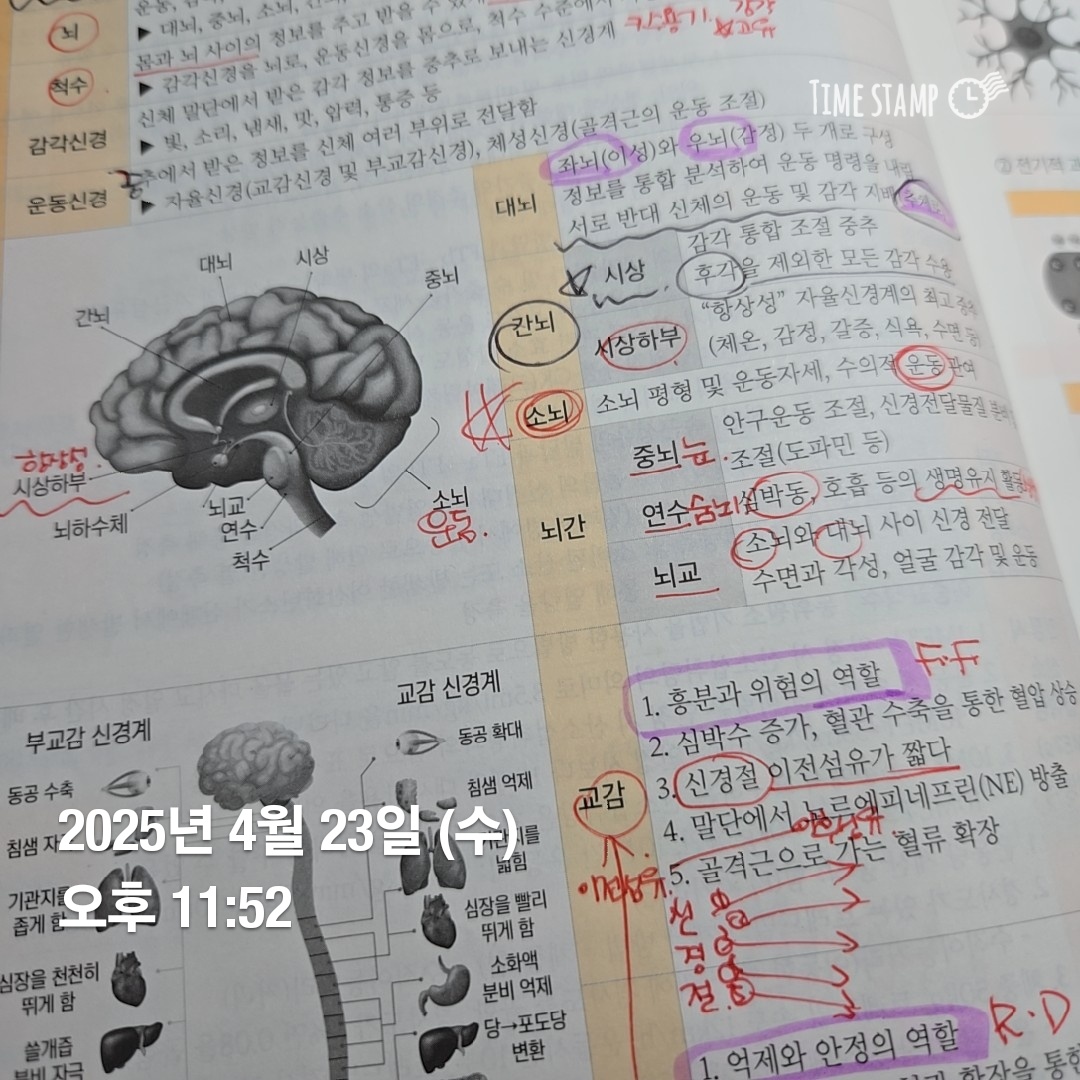 뇌
▶ 대뇌, 중뇌, 소뇌,
몸과 뇌 사이의 정보를 주고 받을 수 있게
척수
▶ 감각신경을 뇌로, 운동신경을 몸으로, 척수 수준에서
감각신경
신체 말단에서 받은 감각 정보를 중추로 보내는 신경계
▶ 빛, 소리, 냄새, 맛, 압력, 통증 등
운동신경
중추에서 받은 정보를 신체 여러 부위로 전달함
▶ 자율신경(교감신경 및 부교감신경), 체성신경(골격근의 운동 조절)
TIME STAMP
대뇌
좌뇌(이성)와 우뇌(감정) 두 개로 구성
정보를 통합 분석하여 운동 명령을 내림
서로 반대 신체의 운동 및 감각 지배
간뇌
시상
감각 통합 조절 중추
후각을 제외한 모든 감각 수용
시상하부
“항상성” 자율신경계의 최고 중추
(체온, 감정, 갈증, 식욕, 수면 등)
소뇌
소뇌 평형 및 운동자세, 수의적 운동 관여
뇌간
중뇌 눈
안구운동 조절, 신경전달물질
조절(도파민 등)
연수 숨뇌
심박동, 호흡 등의 생명유지 활동
뇌교
소뇌와 대뇌 사이 신경 전달
수면과 각성, 얼굴 감각 및 운동
대뇌
시상
중뇌
간뇌
항상성
시상하부
뇌하수체
뇌교
연수
척수
소뇌
운동
부교감 신경계
교감 신경계
동공 수축
동공 확대
침샘
침샘 억제
기관지를
좁게 함
넓힘
심장을 천천히
뛰게 함
심장을 빨리
뛰게 함
소화액
분비 억제
쓸개즙
분비 자극
당→포도당
변환
교감
1. 흥분과 위험의 역할
F.F
2. 심박수 증가, 혈관 수축을 통한 혈압 상승
3. 신경절 이전섬유가 짧다
4. 말단에서 노르에피네프린(NE) 방출
5. 골격근으로 가는 혈류 확장
신
경
절
1. 억제와 안정의 역할
R.D
2025년 4월 23일 (수)
오후 11:52
② 전기적